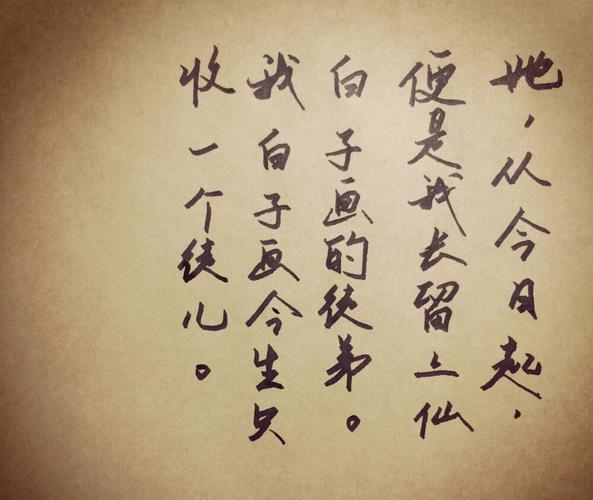 她，从今日起，
便是我长留上仙
白子画的徒弟。
我白子画今生只
收一个徒儿。